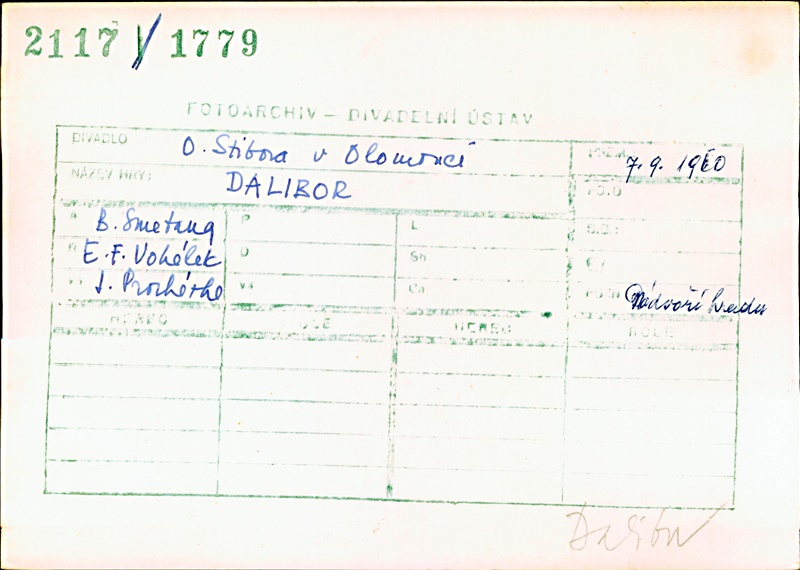 2117/1779
FOTOARCHIV – DIVADELNÍ ÚSTAV
DIVADLO O. Stibora v Olomouci 7.9.1960
NÁZEV HRY: DALIBOR
A B. Smetana P L
R E. F. Vohélek D Sh
J. Procházka Ch Nádvoří hradu
HEREC ROLE HEREC ROLE
Dalibor